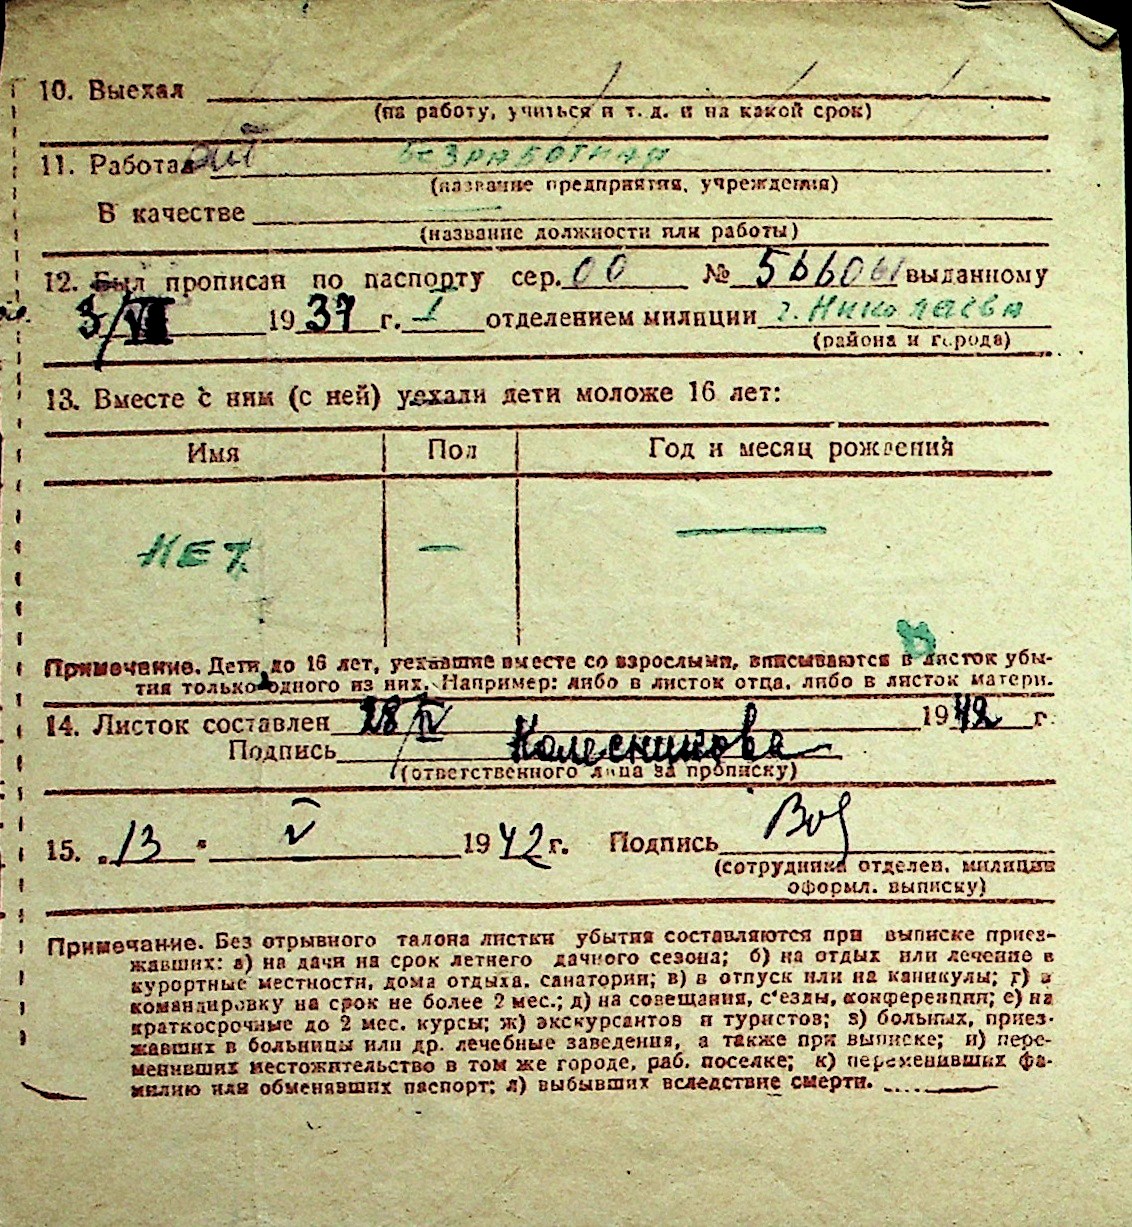 10. Выехал
(на работу, учиться и т. д. и на какой срок)
11. Работал безработная
(название предприятия, учреждения)
В качестве
(название должности или работы)
12. Был прописан по паспорту сер. 00 № выданному
3/VII 1937 г. I отделением милиции г. Николаева
(района и города)
13. Вместе с ним (с ней) уехали дети моложе 16 лет:
Имя Пол Год и месяц рождения
НЕТ — —
Примечание. Дети до 16 лет, уехавшие вместе со взрослыми, вписываются в листок убы-
тия только одного из них. Например: либо в листок отца, либо в листок матери.
14. Листок составлен 28/IV 1942 г.
Подпись Колесникова
(ответственного лица за прописку)
15. „13" V 1942 г. Подпись
(сотрудника отделен. милиции
оформл. выписку)
Примечание. Без отрывного талона листки убытия составляются при выписке приез-
жавших: а) на дачи на срок летнего дачного сезона; б) на отдых или лечение в
курортные местности, дома отдыха, санатории; в) в отпуск или на каникулы; г) в
командировку на срок не более 2 мес.; д) на совещания, с'езды, конференции; е) на
краткосрочные до 2 мес. курсы; ж) экскурсантов и туристов; з) больных, приез-
жавших в больницы или др. лечебные заведения, а также при выписке; и) пере-
менивших местожительство в том же городе, раб. поселке; к) переменивших фа-
милию или обменявших паспорт; л) выбывших вследствие смерти.